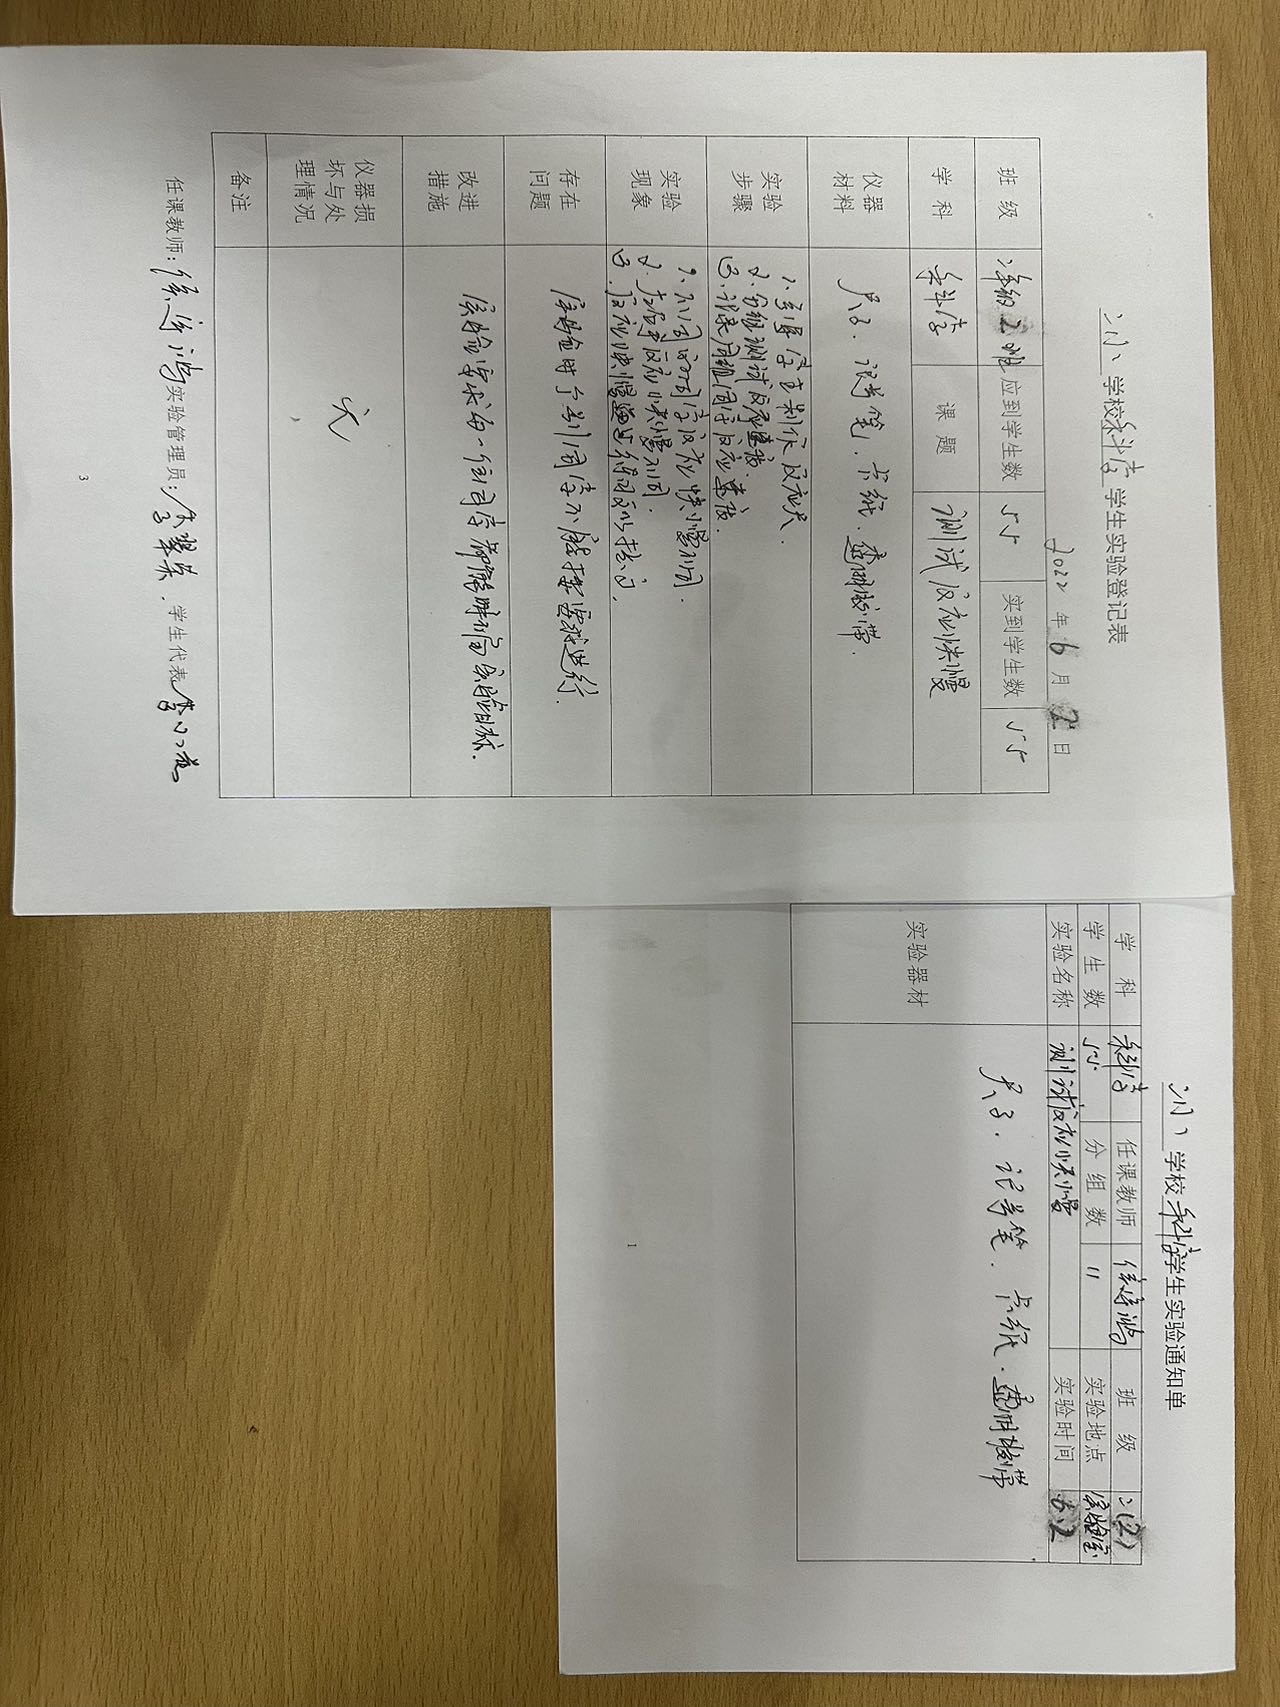 学校科学学生实验登记表
2022年6月2日
班级 二年级2班 应到学生数 55 实到学生数 55
学科 科学 课题 测试反应快慢
仪器材料 尺子、记号笔、卡纸、透明胶带.
实验步骤 1、引导学生制作反应尺.
2、分组测试反应速度.
3、记录同组同学反应速度.
实验现象 1、不同的同学反应快慢不同.
2、左右手反应快慢不同.
3、反应快慢通过练习可以提高.
存在问题 实验时个别同学不能按要求进行.
改进措施 实验要求每一位同学都能明确实验目标.
仪器损坏与处理情况 无
备注
任课教师: 实验管理员: 学生代表:
3
学校科学学生实验通知单
学科 科学 任课教师 班级 二(2)
学生数 55 分组数 11 实验地点 实验室
实验名称 测试反应快慢 实验时间 6.2
实验器材 尺子、记号笔、卡纸、透明胶带
1